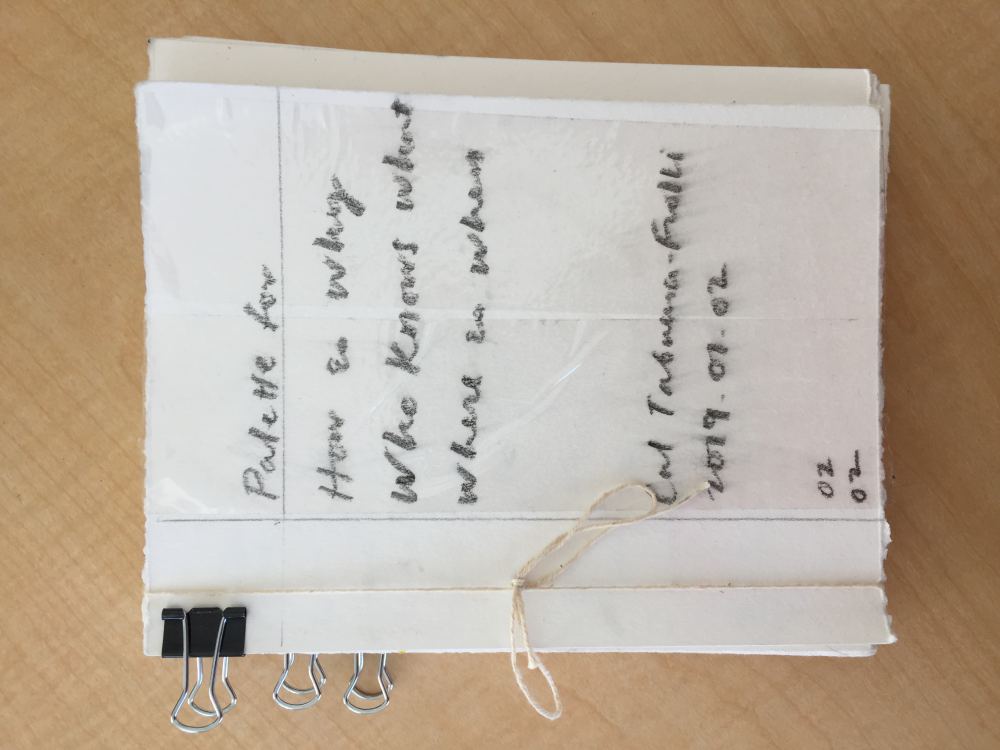 Palette for
How & Why
Who Knows What
Where & When
Cal Tabuena-Frolli
2019.01.02
02
02